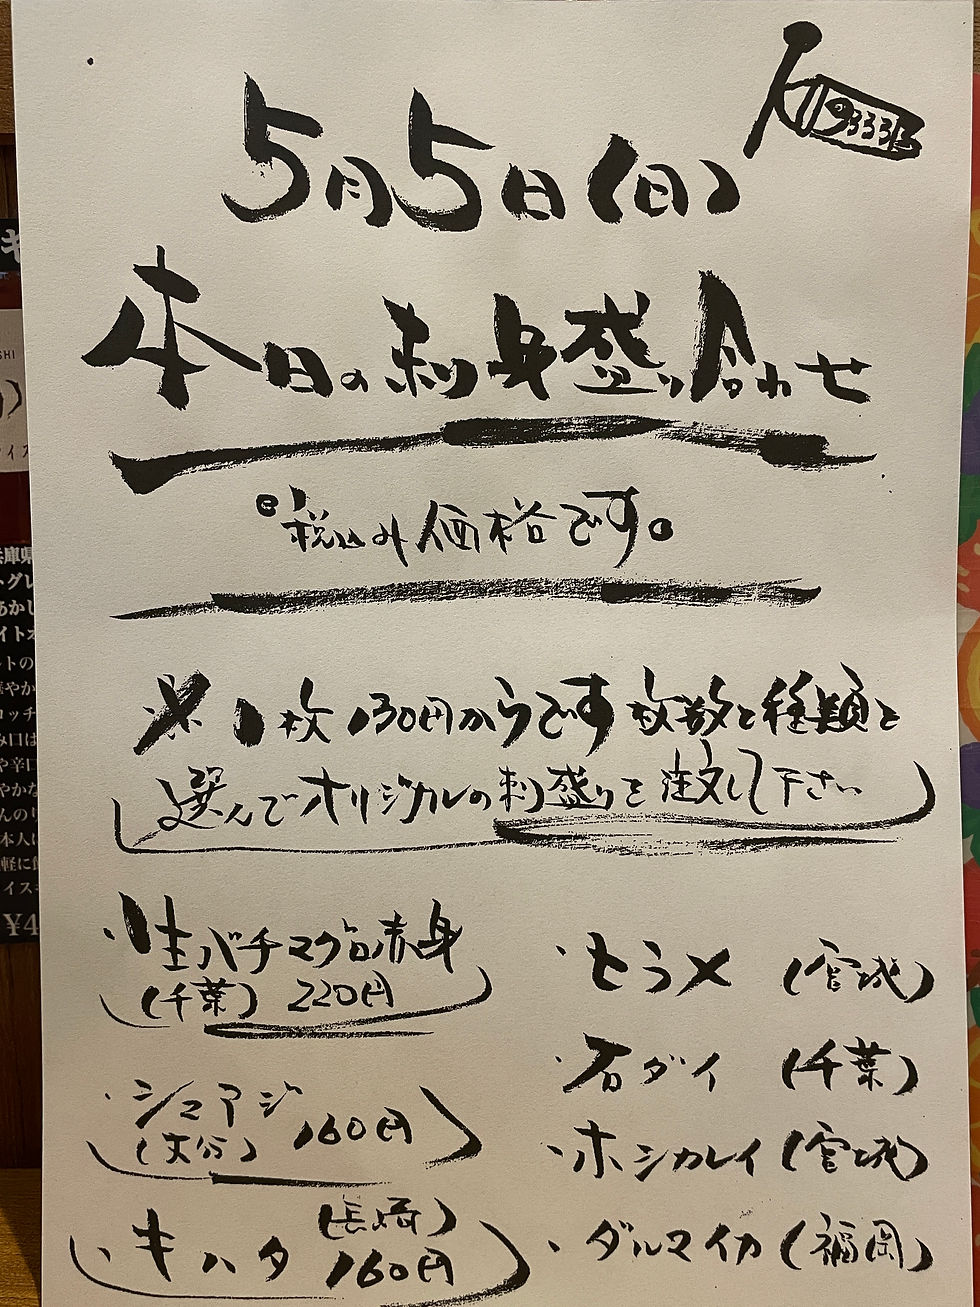 5月5日(日)
本日の刺身盛り合わせ
税込み価格です。
※1枚130円からです枚数と種類を
選んでオリジナルの刺盛りを注文して下さい
・生バチマグロ赤身
(千葉) 220円
・シマアジ
(大分) 160円
・キハタ (長崎)
160円
・ヒラメ (宮城)
・石ダイ (千葉)
・ホシカレイ (宮城)
・ダルマイカ (福岡)
兵庫県
あかし
¥4